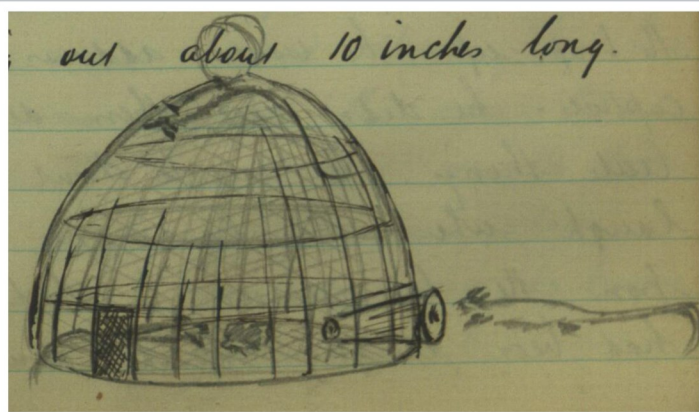 out about 10 inches long.